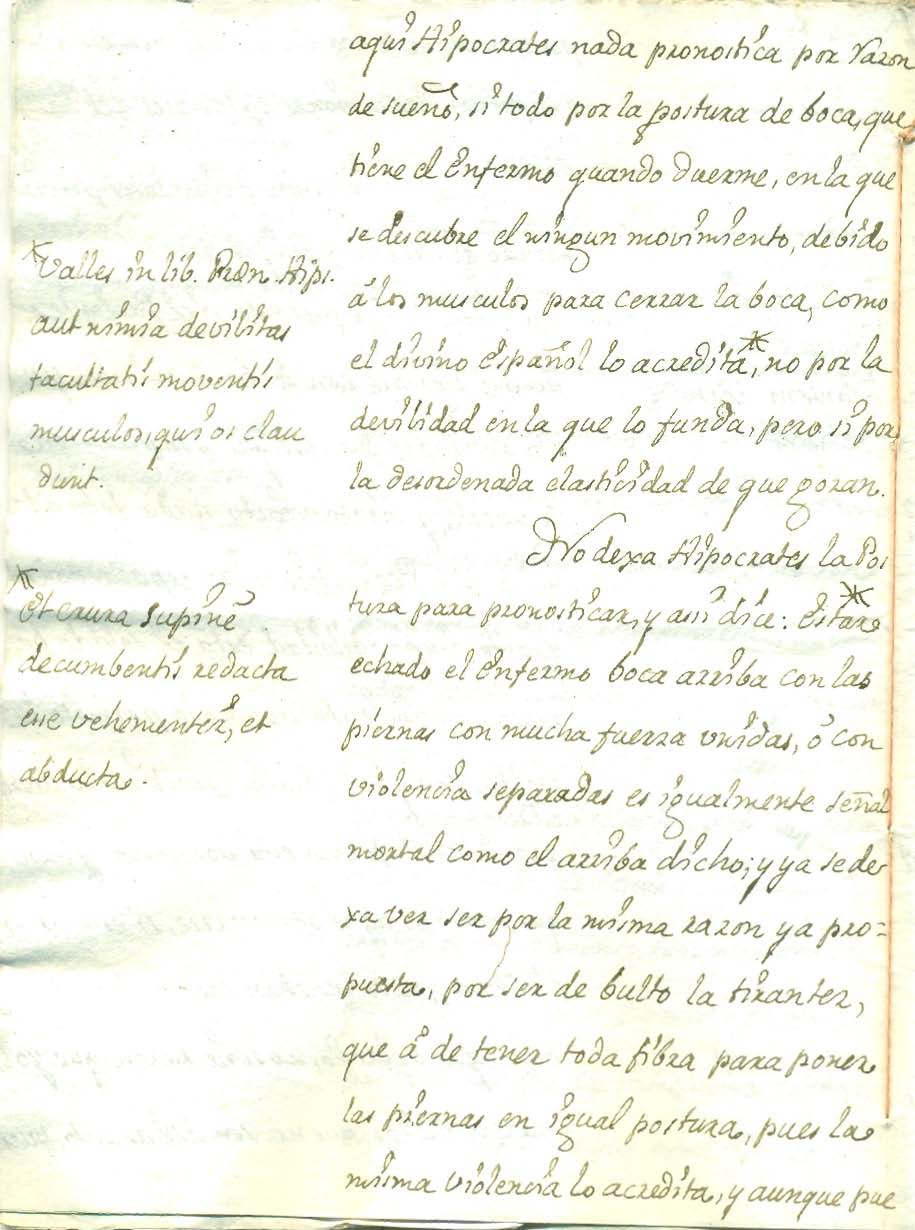 aqui Hipocrates nada pronostica por razon
de sueño, si todo por la postura de boca, que
tiene el Enfermo quando duerme, en la que
se descubre el ningun movimiento, debido
á los musculos para cerrar la boca, como
el divino Español lo acredita, no por la
devilidad en la que lo funda, pero si por
la desordenada elasticidad de que gozan.
No dexa Hipocrates la Pos
tura para pronosticar, y assi dice: Estar
echado el Enfermo boca arriba con las
piernas con mucha fuerza unidas, ó con
violencia separadas es igualmente señal
mortal como el arriba dicho; y ya se de
xa ver ser por la misma razon ya pro=
puesta, por ser de bulto la tirantez,
que á de tener toda fibra para poner
las piernas en igual postura, pues la
misma violencia lo acredita, y aunque pue
Valles in lib. Præn. Hips.
aut nimia devilitas
facultatis moventis
musculos, qui os clau
dunt.
Et crura supinè
decumbentis redacta
esse vehementer, et
abducta.